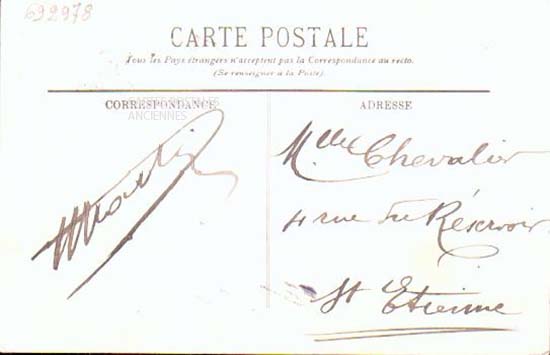 692978
CARTE POSTALE
Tous les Pays étrangers n'acceptent pas la Correspondance au recto.
(Se renseigner à la Poste).
CORRESPONDANCE
ADRESSE
CARTES POSTALES
ANCIENNES
Mlle Chevalier
4 rue du Réservoir
St Etienne